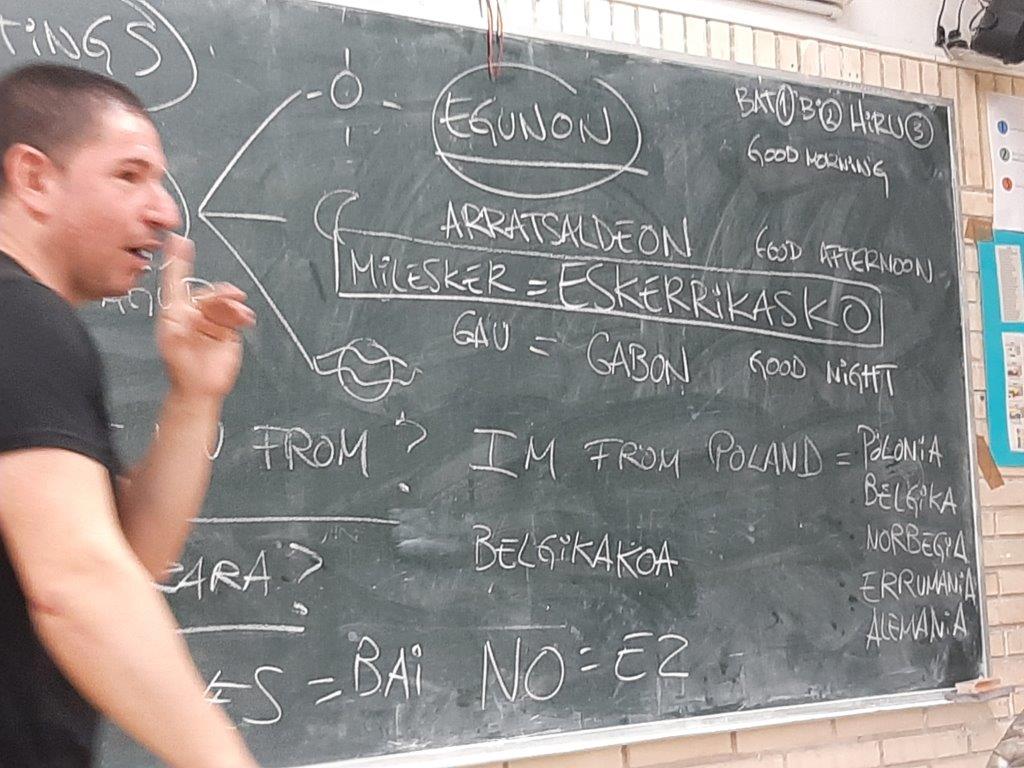 TINGS
EGUNON
BAT ① Bi ② HiRU ③
GOOD MORNING
ARRATSALDEON
GOOD AFTERNOON
MiLESKER = ESKERRiKASKO
AGUR
GAU = GABON
GOOD NiGHT
U FROM? IM FROM POLAND = POLONiA
BELGiKA
NORBEGiA
ERRUMANiA
ALEMANiA
ZARA? BELGiKAKOA
YES = BAi NO = EZ